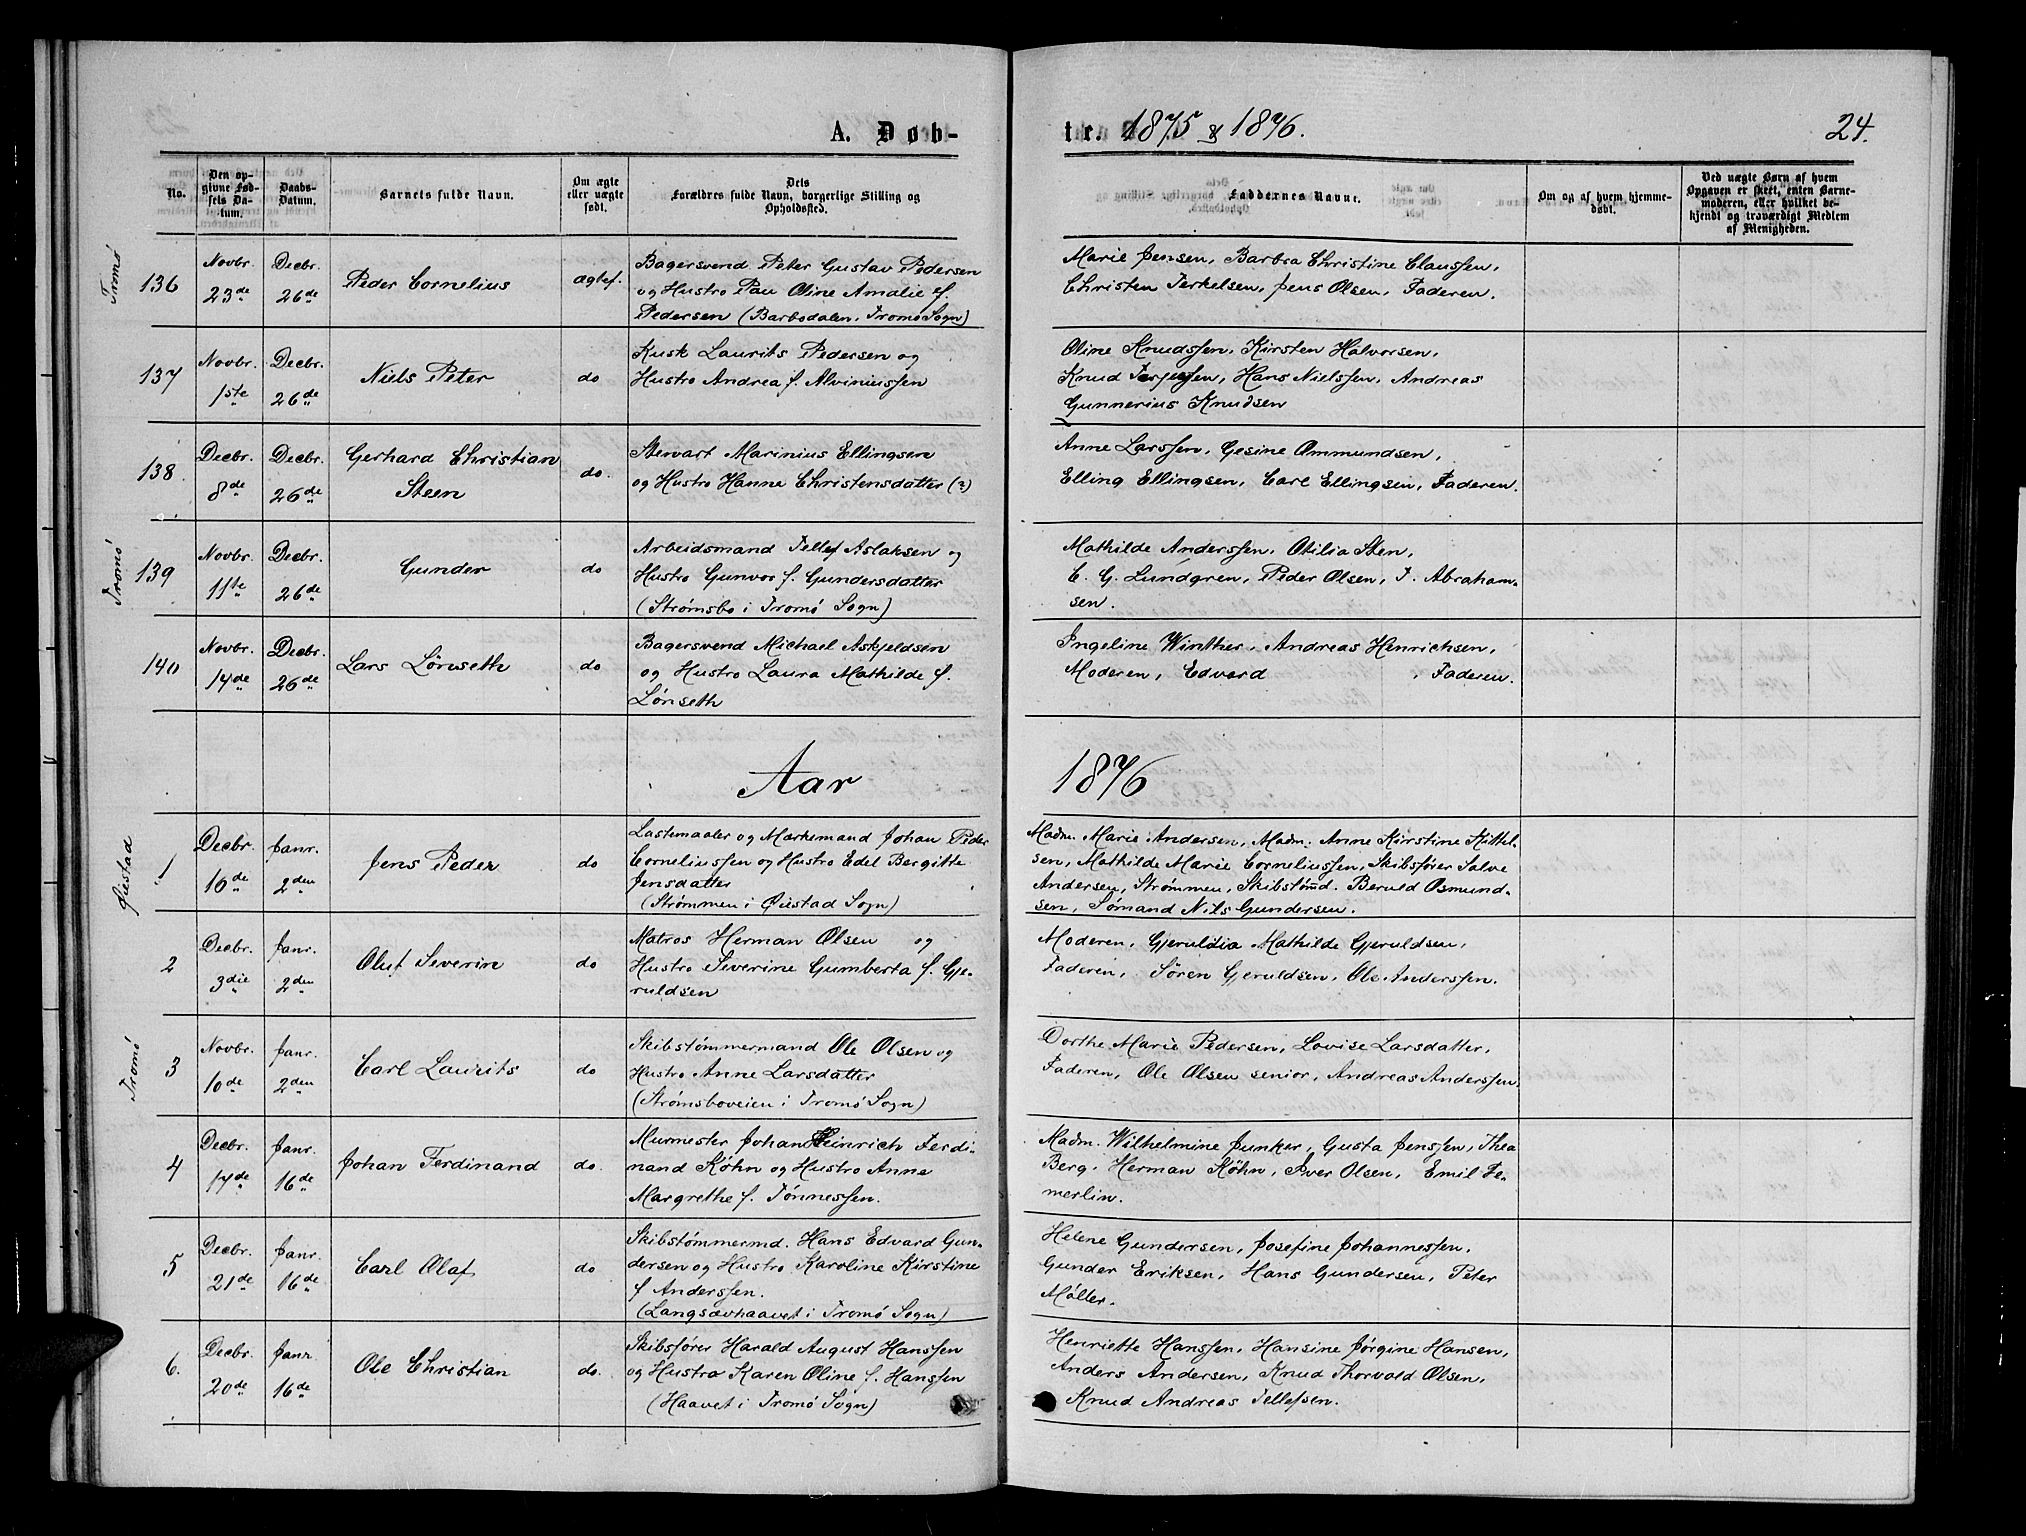 A. Døb-
No.
Den op-
givne Fød-
sels Da-
tum.
Daabs-
Datum.
Barnets fulde Navn.
Om ægte
eller uægte
født.
Dets
Forældres fulde Navn, borgerlige Stilling og
Opholdsted.
Tromø
136
Novbr.
23de
Decbr.
26de
Peder Cornelius
ægtef.
Bagersvend Peter Gustav Pedersen
og Hustro Pau Oline Amalie f.
Pedersen (Barbodalen i Tromø Sogn)
137
Novbr.
1ste
Decbr.
26de
Niels Peter
do
Kusk Laurits Pedersen og
Hustro Andrea f. Alviniussen
138
Decbr.
8de
Decbr.
26de
Gerhard Christian
Steen
do.
Stervart Marinius Ellingsen
og Hustro Hanne Christensdatter (?)
Tromø
139
Novbr.
11te
Decbr.
26de
Gunder
do
Arbeidsmand Tellef Aslaksen og
Hustro Gunvor f. Gundersdatter
(Strømsbo i Tromø Sogn)
140
Novbr.
14de
Decbr.
26de
Lars Lønseth
do
Bagersvend Michael Askjeldsen
og Hustro Laura Mathilde f.
Lønseth
Aar
Øiestad
1
Decbr.
16de
Janr.
2den
Jens Peder
do
Lastemaaler og Mærkemand Johan Peder
Corneliussen og Hustro Edel Bergitte
Jensdatter
(Strømmen i Øiestad Sogn)
2
Decbr.
3die
Janr.
2den
Oluf Severin
do
Matros Herman Olsen og
Hustro Severine Gumberta f. Gje-
ruldsen
Tromø
3
Novbr.
10de
Janr.
2den
Carl Laurits
do
Skibstømmermand Ole Olsen og
Hustro Anne Larsdatter
(Strømsboveien i Tromø Sogn)
4
Decbr.
14de
Janr.
16de
Johan Ferdinand
do.
Murmester Johan Heinrich Ferdi-
nand Köhn og Hustro Anne
Margrethe f. Tönnessen.
5
Decbr.
21de
Janr.
16de
Carl Olaf
do
Skibstømmermd. Hans Edvard Gun-
dersen og Hustro Karoline Kirstine
f Anderssen.
(Langsævhaavet i Tromø Sogn)
6.
Decbr.
20de
Janr
16de
Ole Christian
do.
Skibsfører Harald August Hanssen
og Hustro Karen Oline f. Hanssen
(Haavet i Tromø Sogn)
te. 1875 & 1876.
24.
Faddernes Navne.
Om og af hvem hjemme-
døbt.
Ved uægte Børn af hvem
Opgaven er skeet, enten Barne-
moderen, eller hvilket be-
kjendt og troværdigt Medlem
af Menigheden.
Marie Jensen, Barbra Christine Claussen,
Christen Terkelsen, Jens Olsen, Faderen.
Oline Knudssen, Kirsten Halvorsen,
Knud Terjessen, Hans Nielssen, Andreas
Gunnerius Knudsen
Anne Larssen, Gesine Ommundsen,
Elling Ellingsen, Carl Ellingsen, Faderen.
Mathilde Anderssen, Otilia Sten,
C. G. Lundgren, Peder Olsen, T. Abraham-
sen.
Ingeline Winther, Andreas Henrichsen,
Moderen, Edvard , Faderen.
1876
Madm. Marie Andersen, Madm. Anne Kirstine Kittel-
sen, Mathilde Marie Corneliussen, Skibsfører Salve
Andersen, Strømmen, Skibstømd. Beruld Osmund-
sen, Sømand Nils Gundersen.
Moderen, Gjeruldia Mathilde Gjeruldsen,
Faderen, Sören Gjeruldsen, Ole Anderssen.
Dorthe Marie Pedersen, Lovise Larsdatter,
Faderen, Ole Olsen senior, Andreas Anderssen.
Madm. Wilhelmine Junker, Gusta Jenssen, Thea
Berg, Herman Köhn, Iver Olsen, Emil Te-
merlin.
Helene Gundersen, Josefine Johannessen,
Gunder Eriksen, Hans Gundersen, Peter
Møller.
Henriette Hanssen, Hansine Jørgine Hansen,
Anders Andersen, Knud Thorvald Olsen,
Knud Andreas Tellefsen.